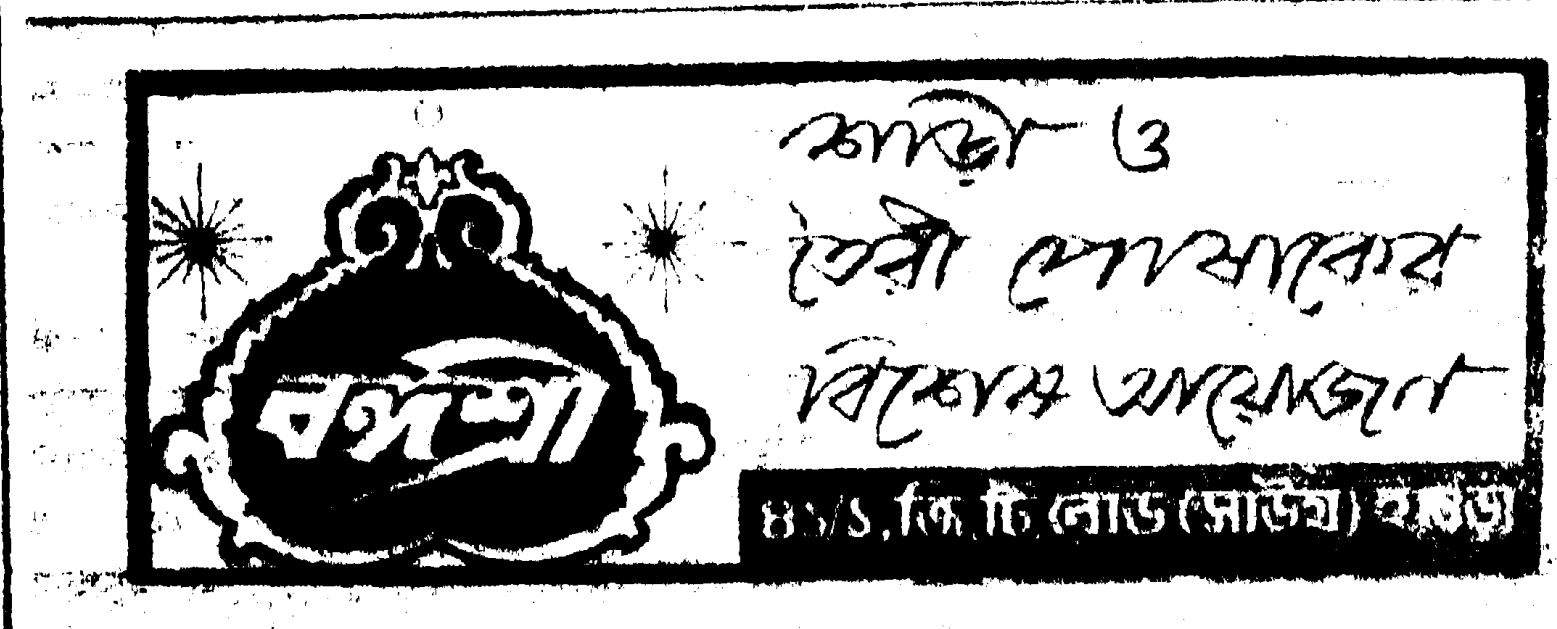 বঙ্গশ্রী
শাড়ী ও
তৈরী পোষাকের
বিশেষ আয়োজন
৪১/১, জি, টি রোড (সাউথ) হাওড়া